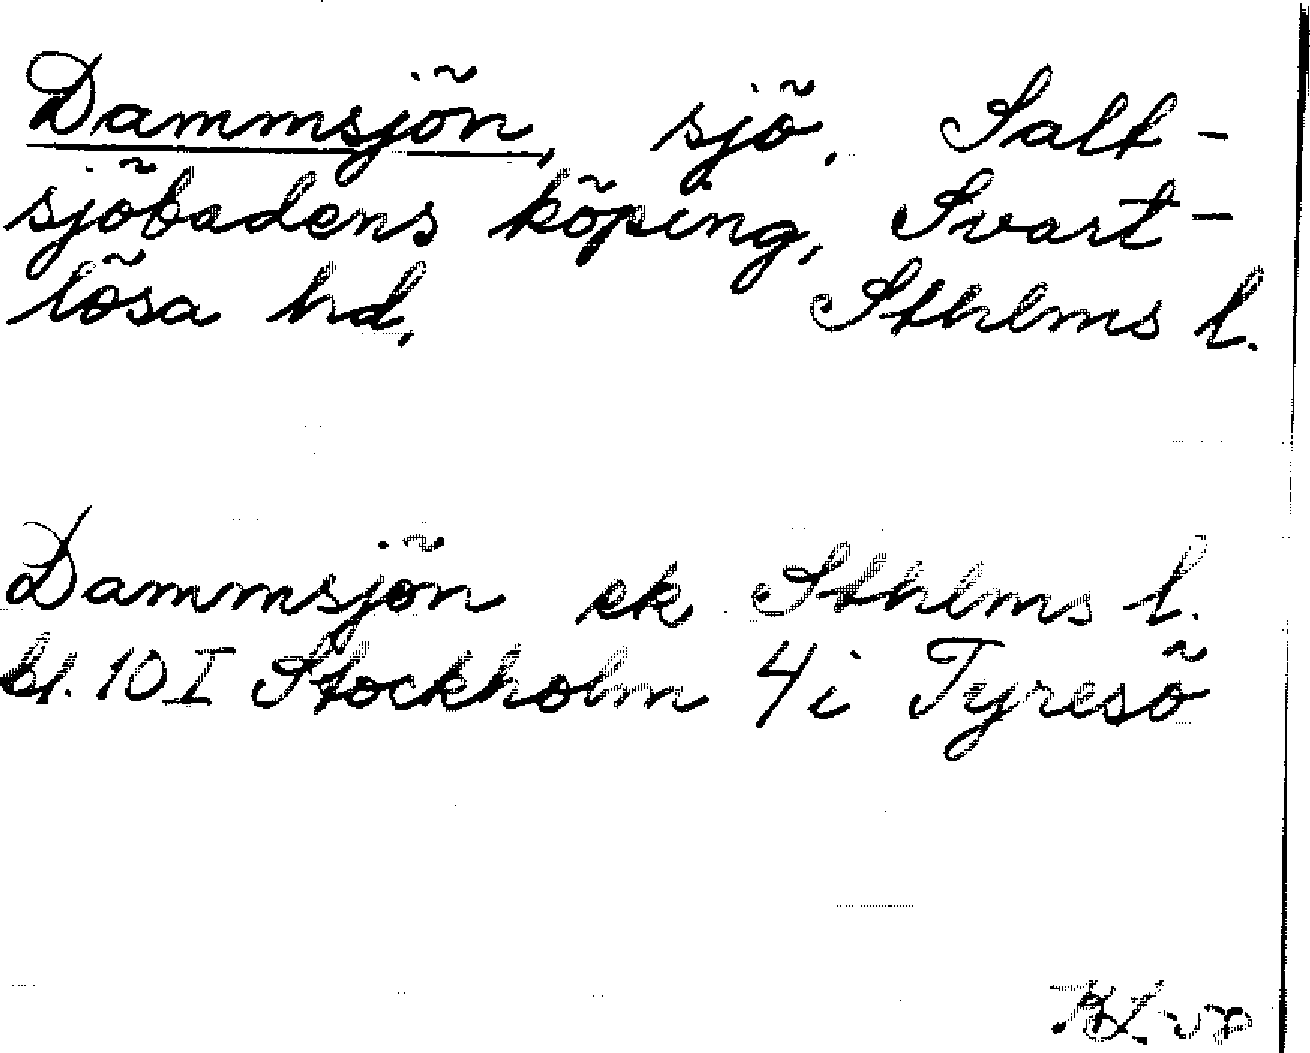 Dammsjön, sjö, Salt-
sjöbadens köping, Svart-
lösa hd, Sthlms l.
Dammsjön ek Sthlms l.
bl. 10 I Stockholm 4 i Tyresö